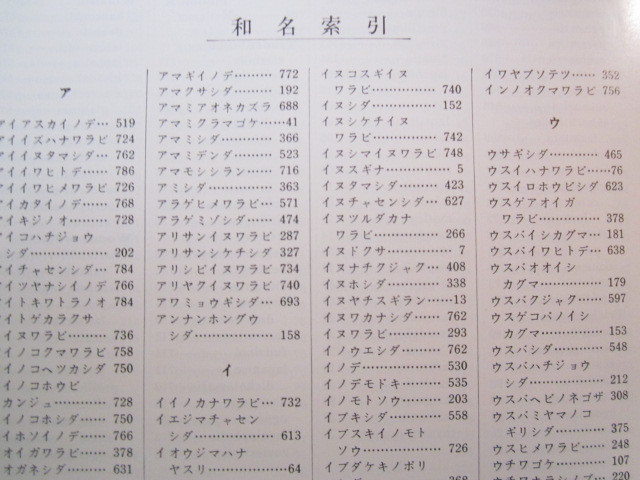 和名索引
ア
アイアスカイノデ… 519
アイイズハナワラビ 724
アイイヌタマシダ… 762
アイイワヒトデ…… 786
アイイワヒメワラビ 726
アイカタイノデ…… 768
アイキジノオ……… 728
アイコハチジョウ
シダ……………… 202
アイチャセンシダ… 784
アイツヤナシイノデ 766
アイトキワトラノオ 784
アイトゲカラクサ
イヌワラビ……… 736
アイノコクマワラビ 758
アイノコヘツカシダ 750
アイノコホウビ
カンジュ………… 728
アイノコホシダ…… 750
アイホソイノデ…… 766
アオイガワラビ…… 378
アオガネシダ……… 631
アマギイノデ……… 772
アマクサシダ……… 192
アマミアオネカズラ 688
アマミクラマゴケ……41
アマミシダ………… 366
アマミデンダ……… 523
アマモシシラン…… 716
アミシダ…………… 363
アラゲヒメワラビ… 571
アラゲミゾシダ…… 474
アリサンイヌワラビ 287
アリサンシケチシダ 327
アリシビイヌワラビ 734
アリヤクイヌワラビ 740
アワミョウギシダ… 693
アンナンホングウ
シダ……………… 158
イ
イイノカナワラビ… 732
イエジマチャセン
シダ……………… 613
イオウジマハナ
ヤスリ……………64
イヌコスギイヌ
ワラビ…………… 740
イヌシダ…………… 152
イヌシケチイヌ
ワラビ…………… 742
イヌシマイヌワラビ 748
イヌスギナ………… 5
イヌタマシダ……… 423
イヌチャセンシダ… 627
イヌツルダカナ
ワラビ…………… 266
イヌドクサ………… 7
イヌナチクジャク… 408
イヌホシダ………… 338
イヌヤチスギラン……13
イヌワカナシダ…… 762
イヌワラビ………… 293
イノウエシダ……… 762
イノデ……………… 530
イノデモドキ……… 535
イノモトソウ……… 203
イブキシダ………… 558
イブスキイノモト
ソウ……………… 726
イブダケキノボリ
イワヤブソテツ…… 352
インノオクマワラビ 756
ウ
ウサギシダ………… 465
ウスイハナワラビ……76
ウスイロホウビシダ 623
ウスゲアオイガ
ワラビ…………… 378
ウスバイシカグマ… 181
ウスバイワヒトデ… 638
ウスバオオイシ
カグマ…………… 179
ウスバクジャク…… 597
ウスゲコバノイシ
カグマ…………… 153
ウスバシダ………… 548
ウスバハチジョウ
シダ……………… 212
ウスバヘビノネゴザ 308
ウスバミヤマノコ
ギリシダ………… 375
ウスヒメワラビ…… 248
ウチワゴケ………… 107